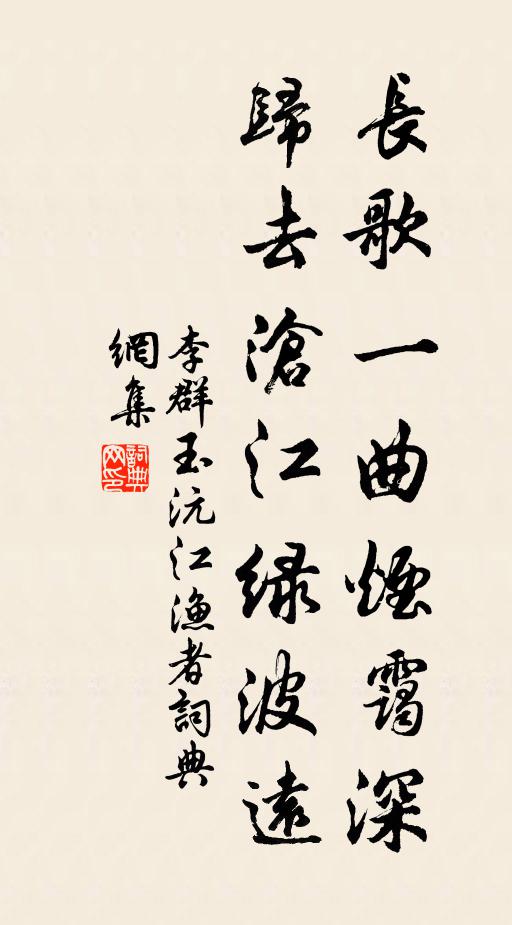 長歌一曲煙靄深
歸去滄江綠波遠
李群玉沅江漁者詞典
網集
詞典
网印